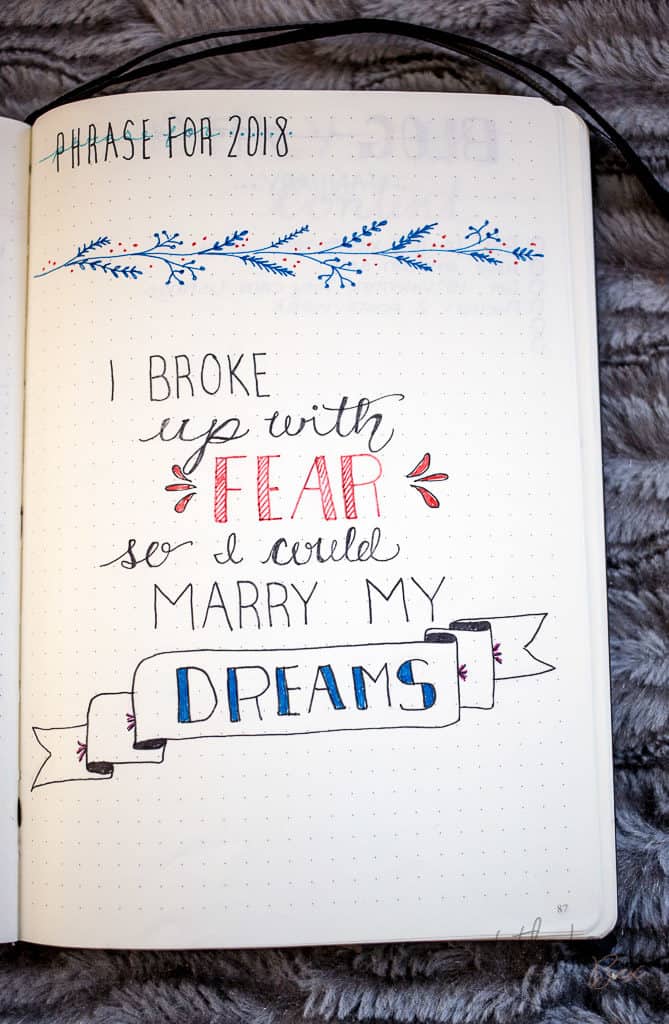 PHRASE FOR 2018
I BROKE
up with
FEAR
so I could
MARRY MY
DREAMS
87